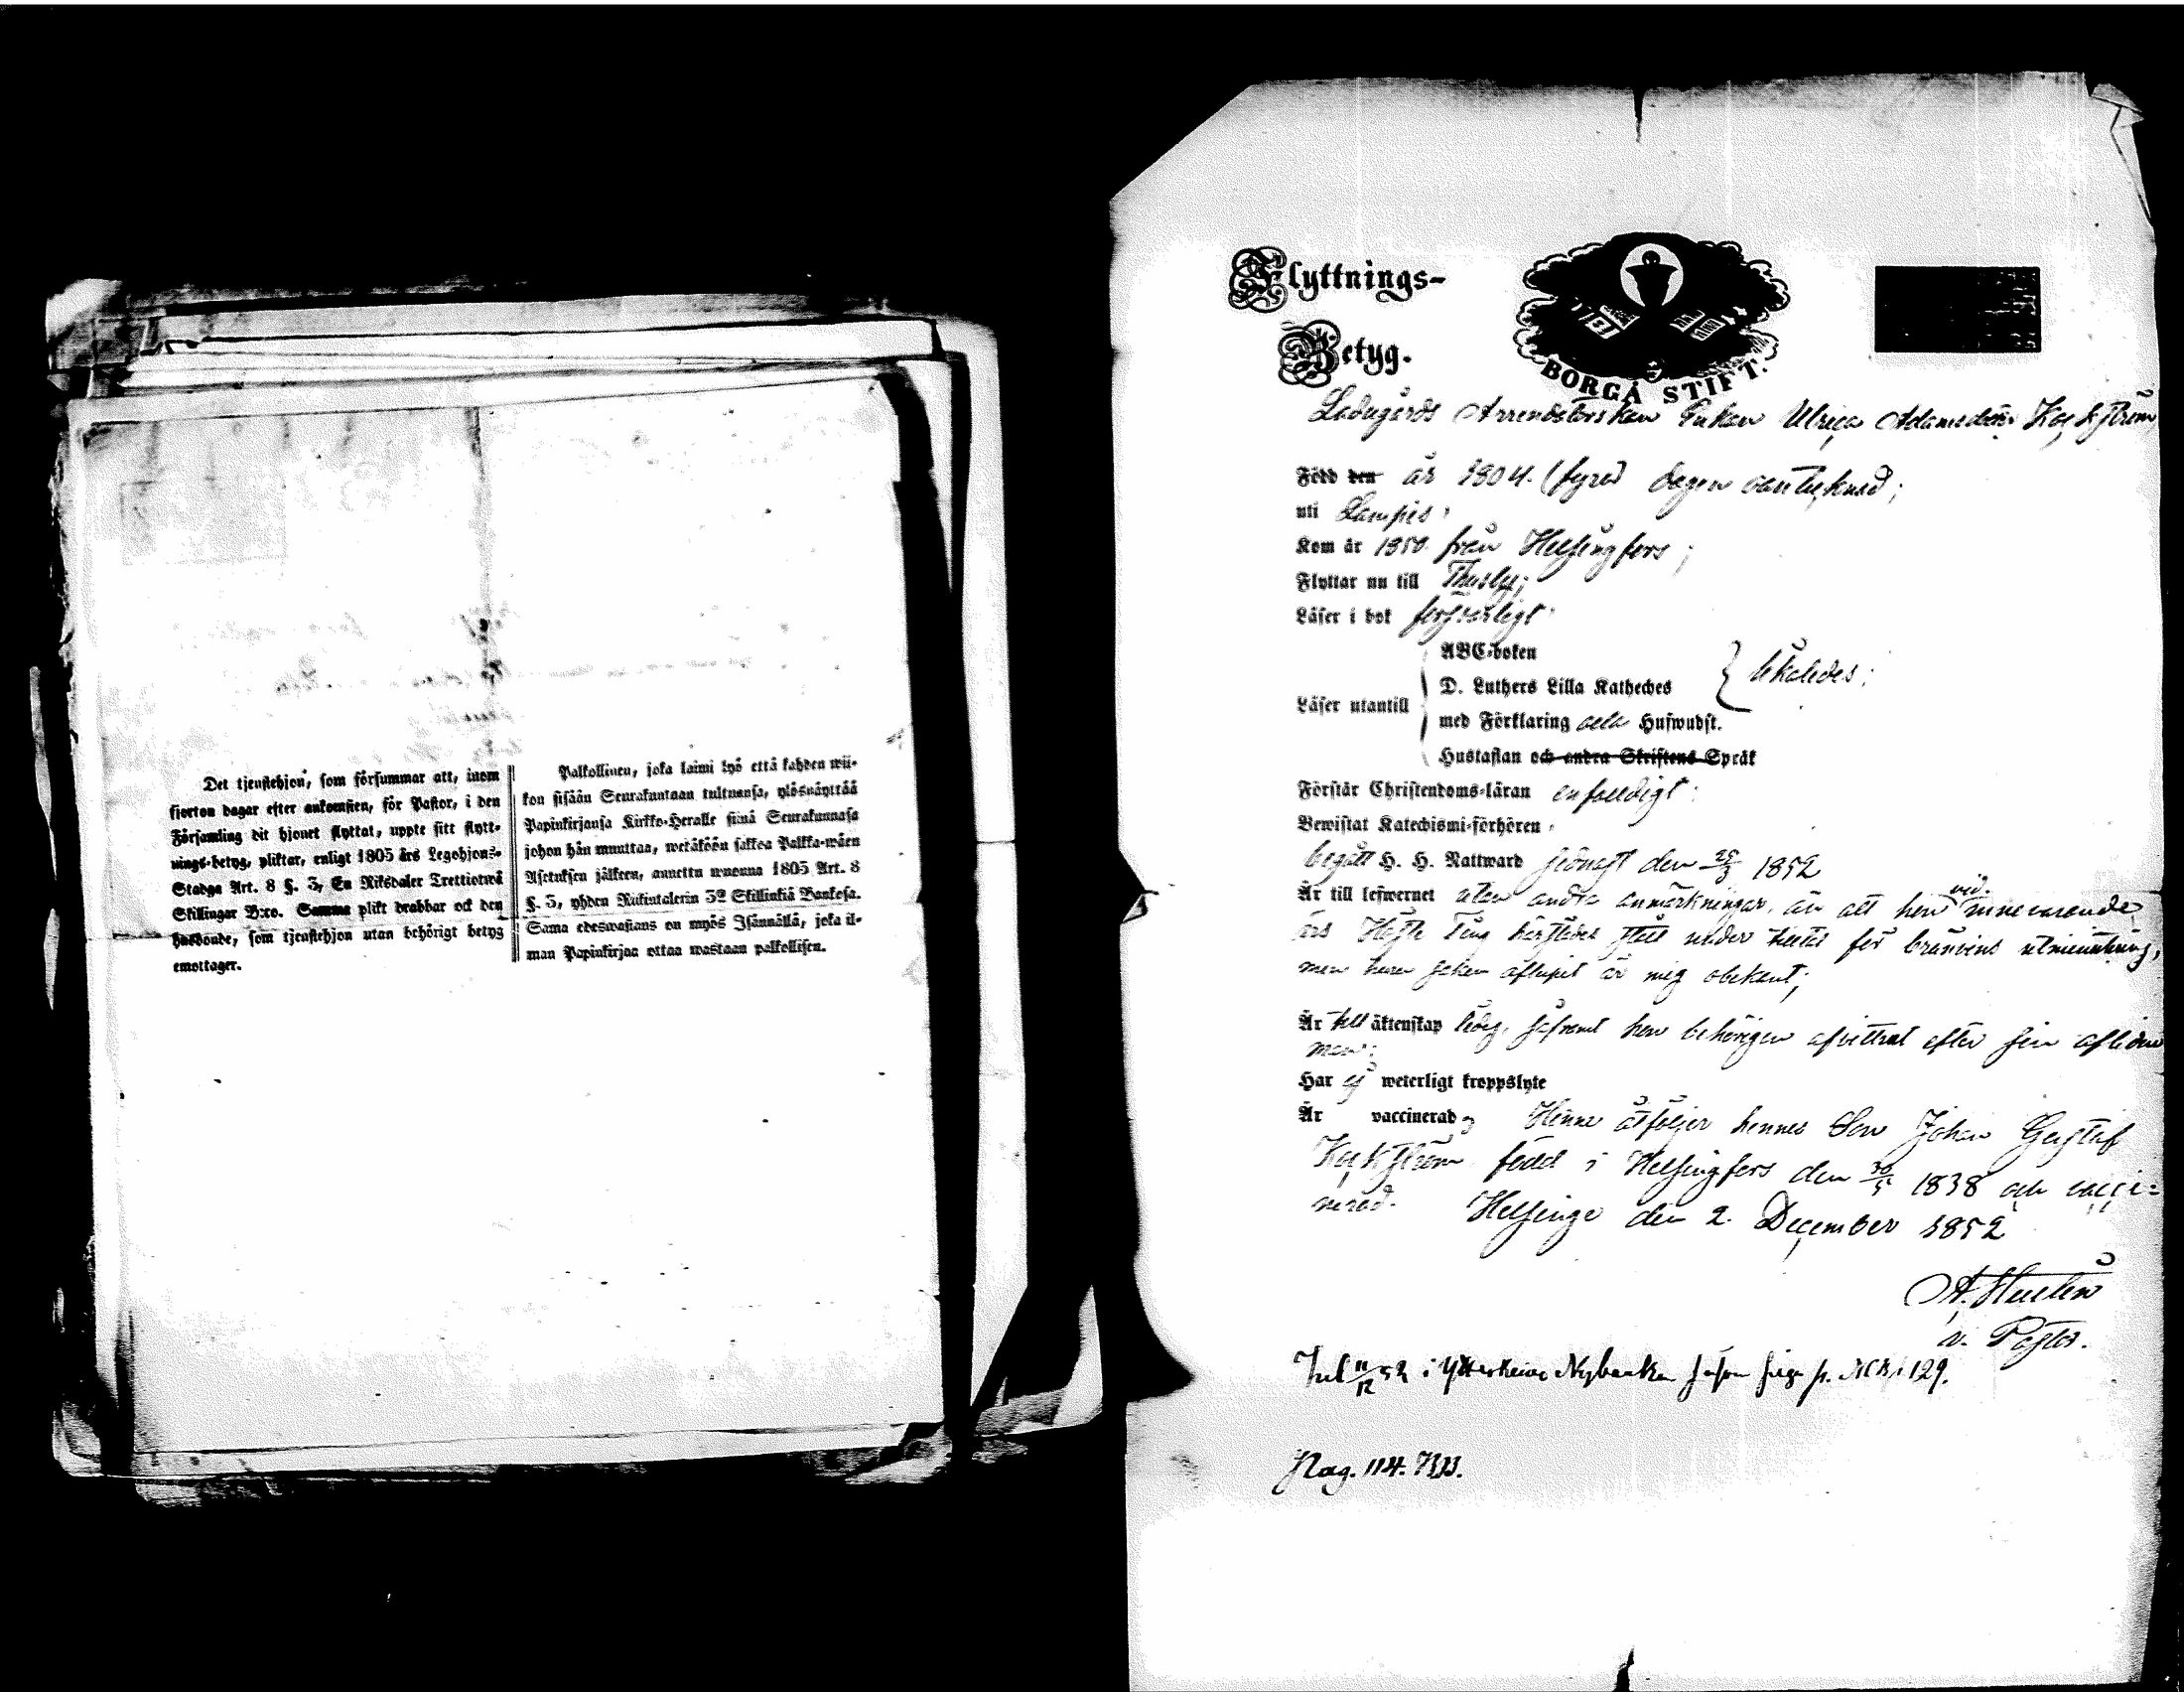 Det tjenstehjon, som försummar att, inom
fjorton dagar efter ankomsten, för Pastor, i den
Församling dit hjonet flyttat, uppte sitt flytt-
nings-betyg, pliktar, enligt 1805 års Legohjons-
Stadga Art. 8 §. 3, En Riksdaler Trettiotwå
Skillingar B:co. Samma plikt drabbar ock den
husbonde, som tjenstehjon utan behörigt betyg
emottager.
Palkollinen, joka laimi lyö että kahden wii-
kon sisään Seurakuntaan tultuansa, ylösnäyttää
Papinkirjansa Kirkko-Heralle siinä Seurakunnasa
johon hän muuttaa, wetäköön sakkoa Palkka-wäen
Asetuksen jälkeen, annettu wuonna 1805 Art. 8
§. 3, yhden Riikintalerin 32 Skillinkiä Bankosa.
Sama edeswastaus on myös Isännällä, joka il-
man Papinkirjaa ottaa wastaan palkollisen.
Flyttnings-
Betyg.
BORGÅ STIFT.
Ladugårds Arrendatorskan Enkan Ulrica Adamsdotter
Född den år 1804. (fyra) dagen oantecknad;
uti Lampis
Kom år 1850 från Helsingfors;
Flyttar nu till Thusby;
Läser i bok försvarligt
Läser utantill
ABC-boken
D. Luthers Lilla Katheches
med Förklaring och Hufwudst.
Hustaflan och andra Skriftens Språk
likaledes;
Förstår Christendoms-läran enfaldigt
Bewistat Katechismi-förhören
begått H. H. Nattward sednast den 1852
Är till lefwernet utan andra anmärkningar, än att hon vid innevarande
års Höste Ting härstädes stått under tilltal för bränvins utminutering,
men huru saken aflupit är mig obekant;
Är till äktenskap ledig, såframt hon behörigen afvittrat efter sin aflidne
man;
Har ej weterligt kroppslyte
Är vaccinerad; Henne åtföljer hennes Son Johan Gustaf
född i Helsingfors den 30/5 1838 och vacci-
nerad. Helsinge den 2. December 1852
v. Pastor.
11/12 52 i Nybacka p. 129.
Pag. 114.